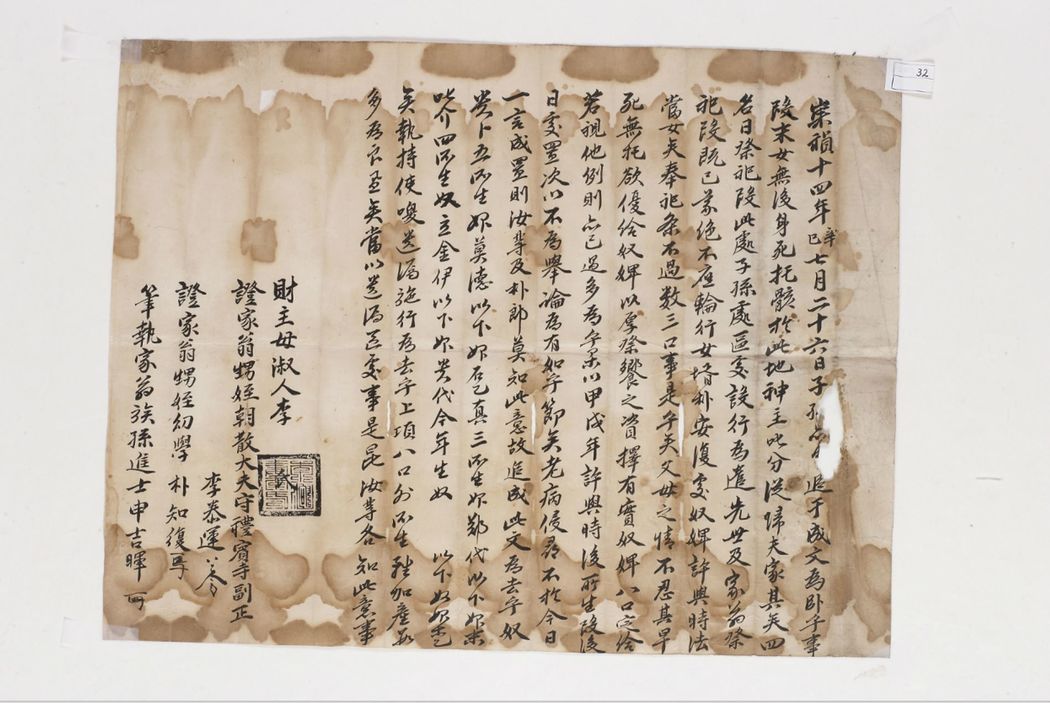 崇禎十四年辛巳七月二十六日子孫 追于成文爲臥乎事
段末女無後身死托骸於此地神主以分從歸夫家其矣四
名日祭祀段此處子孫處區處設行爲遣先世及家翁祭
祀段既已 絶不應輪行女壻朴安復處奴婢許與時法
當女矣奉祀条不過数三口事是乎矣父母之情不忍其早
死無托欲優給奴婢以厚祭饗之資擇有實奴婢八口定給
若視他例則亦已過多爲乎 甲戌年許與時後所生段後
日處置次以不爲擧論爲有如乎節矣老病侵尋不於今日
一言成置則汝輩及朴郎莫知此意故追成此文爲去乎奴
婢 五所生婢莫德以下婢石乙真三所生婢鄭代以下婢
 介四所生奴立金伊以下婢 代今年生奴 以下奴婢
矣執持使喚 施行爲去乎上項八口外所生雖加産
多爲良置矣當以 區處事是昆汝等各知此意事
財主母淑人李
證家翁甥姪朝散大夫守禮賓寺副正
李泰運
證家翁甥姪幼學朴知復
筆執家翁族孫進士申吉暉
32